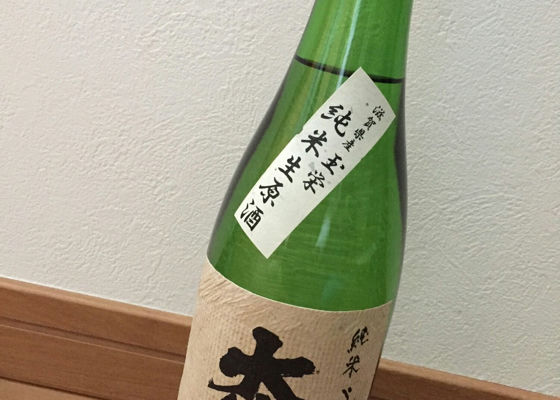 滋賀県産玉栄
純米生原酒
純米